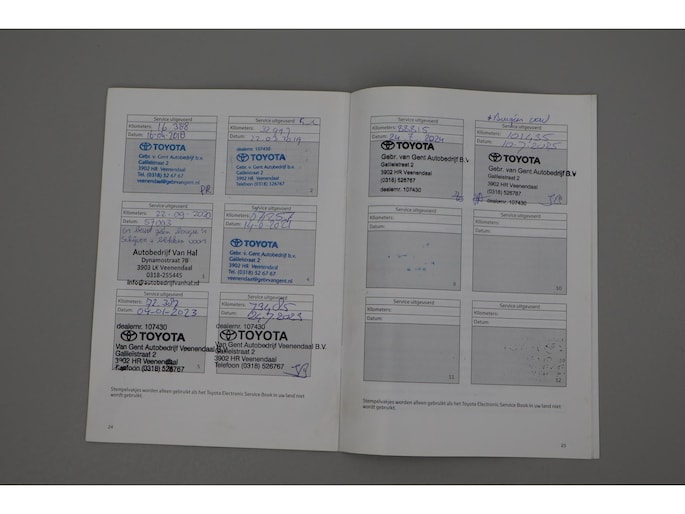 Service uitgevoerd
Kilometers: 16 388
Datum: 16-04-2018
TOYOTA
Gebr. v. Gent Autobedrijf b.v.
Galileistraat 2
3902 HR Veenendaal
Tel. (0318) 52 67 67
veenendaal@gebrvangent.nl
Service uitgevoerd
Kilometers:
Datum:
dealernr. 107430
TOYOTA
Gebr. v. Gent Autobedrijf b.v.
Galileistraat 2
3902 HR Veenendaal
Telefoon (0318) 526767
2
Service uitgevoerd
Kilometers: 22-09-2020
Datum:
Autobedrijf Van Hal
Dynamostraat 79
3903 LK Veenendaal
0318-255445
info@autobedrijfvanhal.nl
3
Service uitgevoerd
Kilometers:
Datum:
TOYOTA
Gebr. v. Gent Autobedrijf b.v.
Galileistraat 2
3902 HR Veenendaal
Tel. (0318) 52 67 67
veenendaal@gebrvangent.nl
4
Service uitgevoerd
Kilometers:
Datum: 04-01-2023
dealernr. 107430
TOYOTA
Van Gent Autobedrijf Veenendaal B.V.
Galileistraat 2
3902 HR Veenendaal
Telefoon (0318) 526767
5
Service uitgevoerd
Kilometers:
Datum:
dealernr. 107430
TOYOTA
Van Gent Autobedrijf Veenendaal B.V.
Galileistraat 2
3902 HR Veenendaal
Telefoon (0318) 526767
Stempelvakjes worden alleen gebruikt als het Toyota Electronic Service Book in uw land niet
wordt gebruikt.
24
Service uitgevoerd
Kilometers: 88815
Datum: 24 7 2024
TOYOTA
Gebr. van Gent Autobedrijf B.V
Galileistraat 2
3902 HR Veenendaal
(0318) 526767
dealernr. 107430
Service uitgevoerd
Kilometers: 101435
Datum: 10-7-2025
TOYOTA
Gebr. van Gent Autobedrijf B.V
Galileistraat 2
3902 HR Veenendaal
(0318) 526767
dealernr. 107430
Service uitgevoerd
Kilometers:
Datum:
9
Service uitgevoerd
Kilometers:
Datum:
10
Service uitgevoerd
Kilometers:
Datum:
11
Service uitgevoerd
Kilometers:
Datum:
12
Stempelvakjes worden alleen gebruikt als het Toyota Electronic Service Book in uw land niet
wordt gebruikt.
25